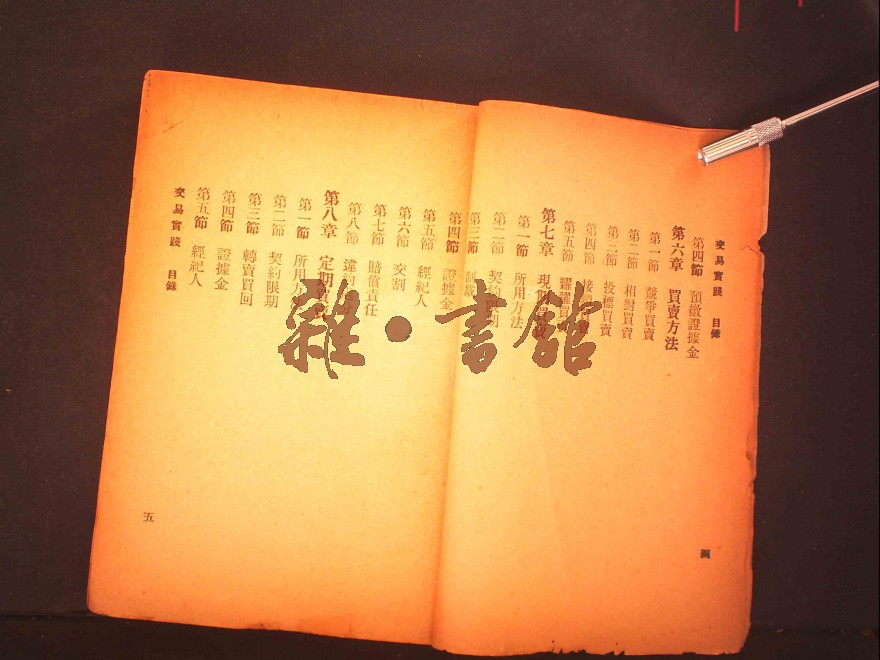 交易實踐 目錄
第四節 預繳證據金
第六章 買賣方法
第一節 競爭買賣
第二節 相對買賣
第三節 投標買賣
第四節 接
第五節
第七章 現期買賣
第一節 所用方法
第二節 契約限期
第三節
第四節 證據金
第五節 經紀人
第六節 交割
第七節 賠償責任
第八節 違約
四
第八章 定期買賣
第一節 所用方法
第二節 契約限期
第三節 轉賣買回
第四節 證據金
第五節 經紀人
交易實踐 目錄
五
雜·書館